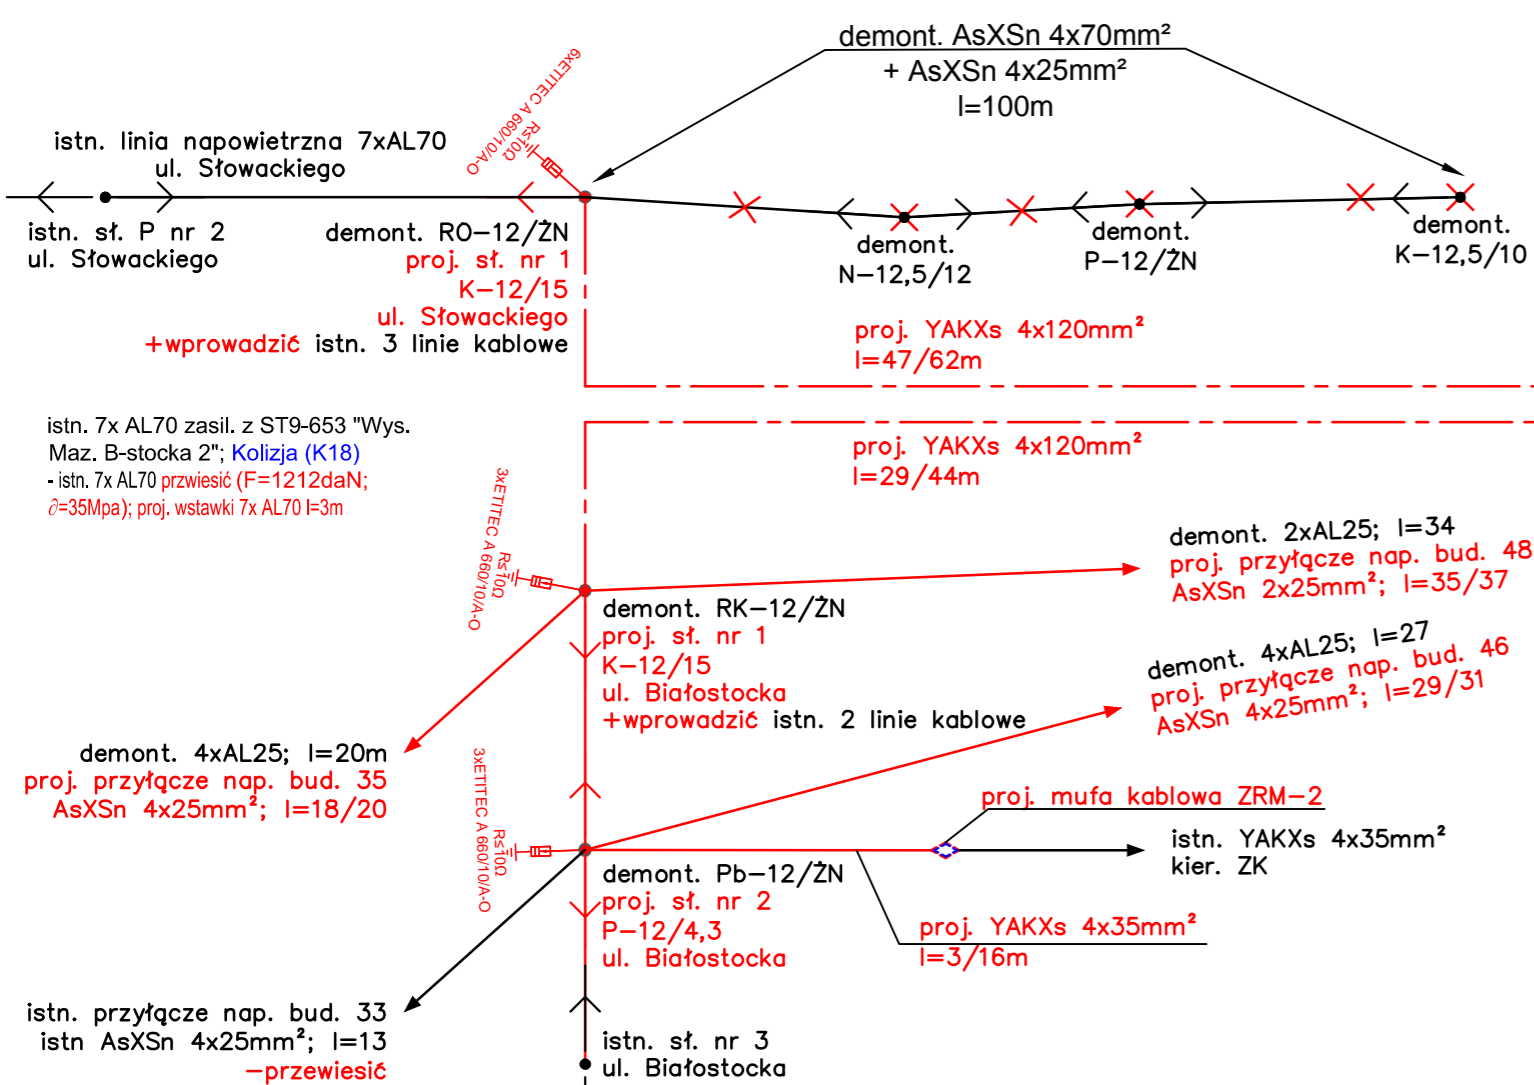 demont. AsXSn 4x70mm²
+ AsXSn 4x25mm²
l=100m
6xETITEC A 660/10/A-O
R≤10Ω
istn. linia napowietrzna 7xAL70
ul. Słowackiego
istn. sł. P nr 2
ul. Słowackiego
demont. RO-12/ŻN
proj. sł. nr 1
K-12/15
ul. Słowackiego
+wprowadzić istn. 3 linie kablowe
demont.
N-12,5/12
demont.
P-12/ŻN
demont.
K-12,5/10
proj. YAKXs 4x120mm²
l=47/62m
istn. 7x AL70 zasil. z ST9-653 "Wys.
Maz. B-stocka 2"; Kolizja (K18)
- istn. 7x AL70 przwiesić (F=1212daN;
∂=35Mpa); proj. wstawki 7x AL70 l=3m
proj. YAKXs 4x120mm²
l=29/44m
3xETITEC A 660/10/A-O
R≤10Ω
demont. 2xAL25; l=34
proj. przyłącze nap. bud. 48
AsXSn 2x25mm²; l=35/37
demont. RK-12/ŻN
proj. sł. nr 1
K-12/15
ul. Białostocka
+wprowadzić istn. 2 linie kablowe
demont. 4xAL25; l=27
proj. przyłącze nap. bud. 46
AsXSn 4x25mm²; l=29/31
demont. 4xAL25; l=20m
proj. przyłącze nap. bud. 35
AsXSn 4x25mm²; l=18/20
3xETITEC A 660/10/A-O
R≤10Ω
proj. mufa kablowa ZRM-2
istn. YAKXs 4x35mm²
kier. ZK
demont. Pb-12/ŻN
proj. sł. nr 2
P-12/4,3
ul. Białostocka
proj. YAKXs 4x35mm²
l=3/16m
istn. przyłącze nap. bud. 33
istn AsXSn 4x25mm²; l=13
-przewiesić
istn. sł. nr 3
ul. Białostocka